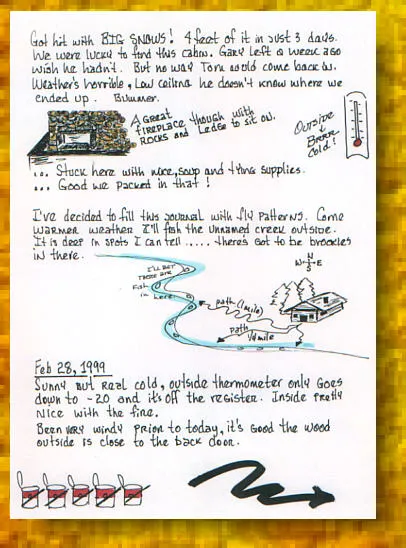 Got hit with BIG SNOWS! 4 feet of it in just 3 days.
We were lucky to find this cabin. Gary left a week ago
wish he hadn't. But no way Tom would come back in.
Weather's horrible, Low Ceiling he doesn't know where we
ended up. Bummer.
A great
fireplace though with
Rocks and Ledge to sit on.
Outside
Brrrr
Cold!
... Stuck here with rice, soup and tying supplies.
... Good we packed in that!
I've decided to fill this journal with fly patterns. Come
warmer weather I'll fish the unnamed creek outside.
It is deep in spots I can tell ..... there's got to be brookies
in there.
I'LL BET
THERE ARE
Fish
in here
N
W E
S
path (1 mile)
path
1/4 mile
Feb 28, 1999
Sunny but Real cold, outside thermometer only goes
down to -20 and it's off the register. Inside pretty
nice with the fire.
Been very windy prior to today, it's good the wood
outside is close to the back door.